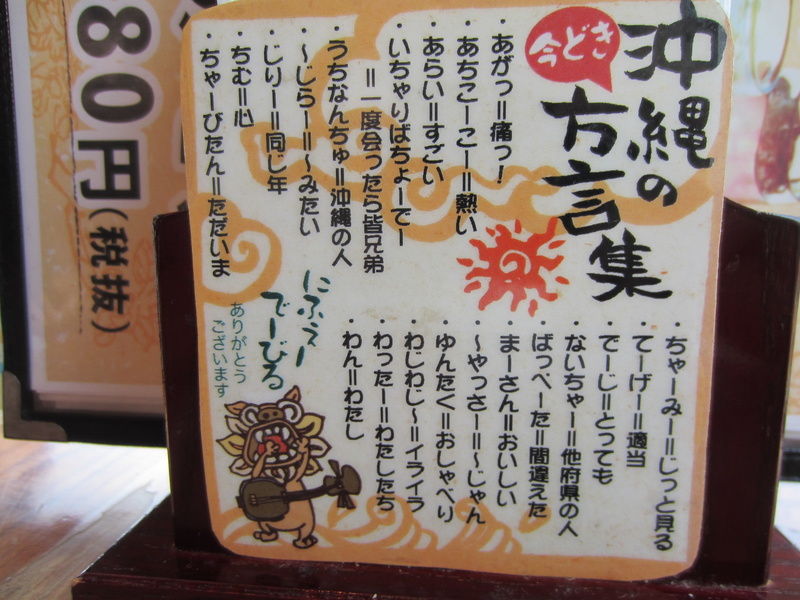 沖縄の
今どき
方言集
・あがっ＝痛っ！
・あちこーこー＝熱い
・あらい＝すごい
・いちゃりばちょーでー
＝一度会ったら皆兄弟
・うちなんちゅ＝沖縄の人
・〜じらー＝〜みたい
・じりー＝同じ年
・ちむ＝心
・ちゃーびたん＝ただいま
・ちゃーみー＝じっと見る
・てーげー＝適当
・でーじ＝とっても
・ないちゃー＝他府県の人
・ばっぺーた＝間違えた
・まーさん＝おいしい
・〜やっさー＝〜じゃん
・ゆんたく＝おしゃべり
・わじわじ〜＝イライラ
・わったー＝わたしたち
・わん＝わたし
にふぇー
でーびる
ありがとう
ございます
80円(税抜)